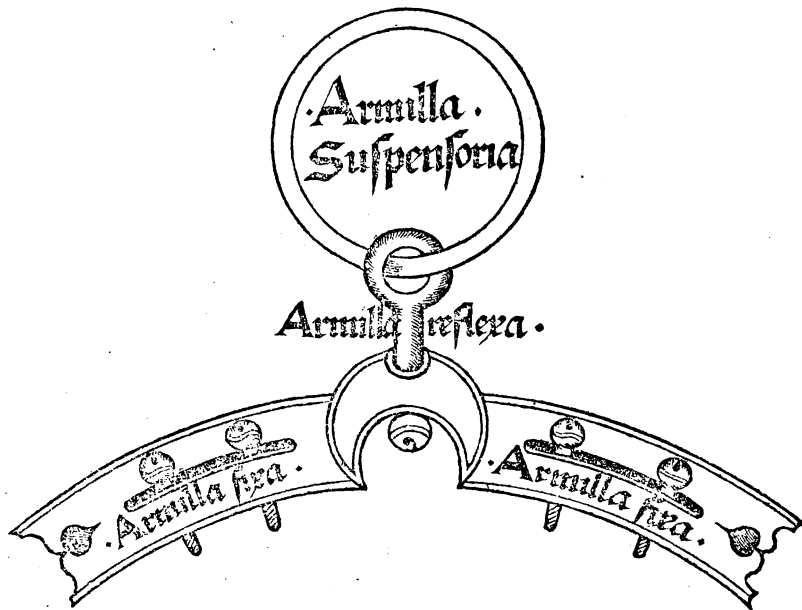 ·Armilla·
Suspensoria
Armilla reflexa·
·Armilla fixa·
·Armilla fixa·